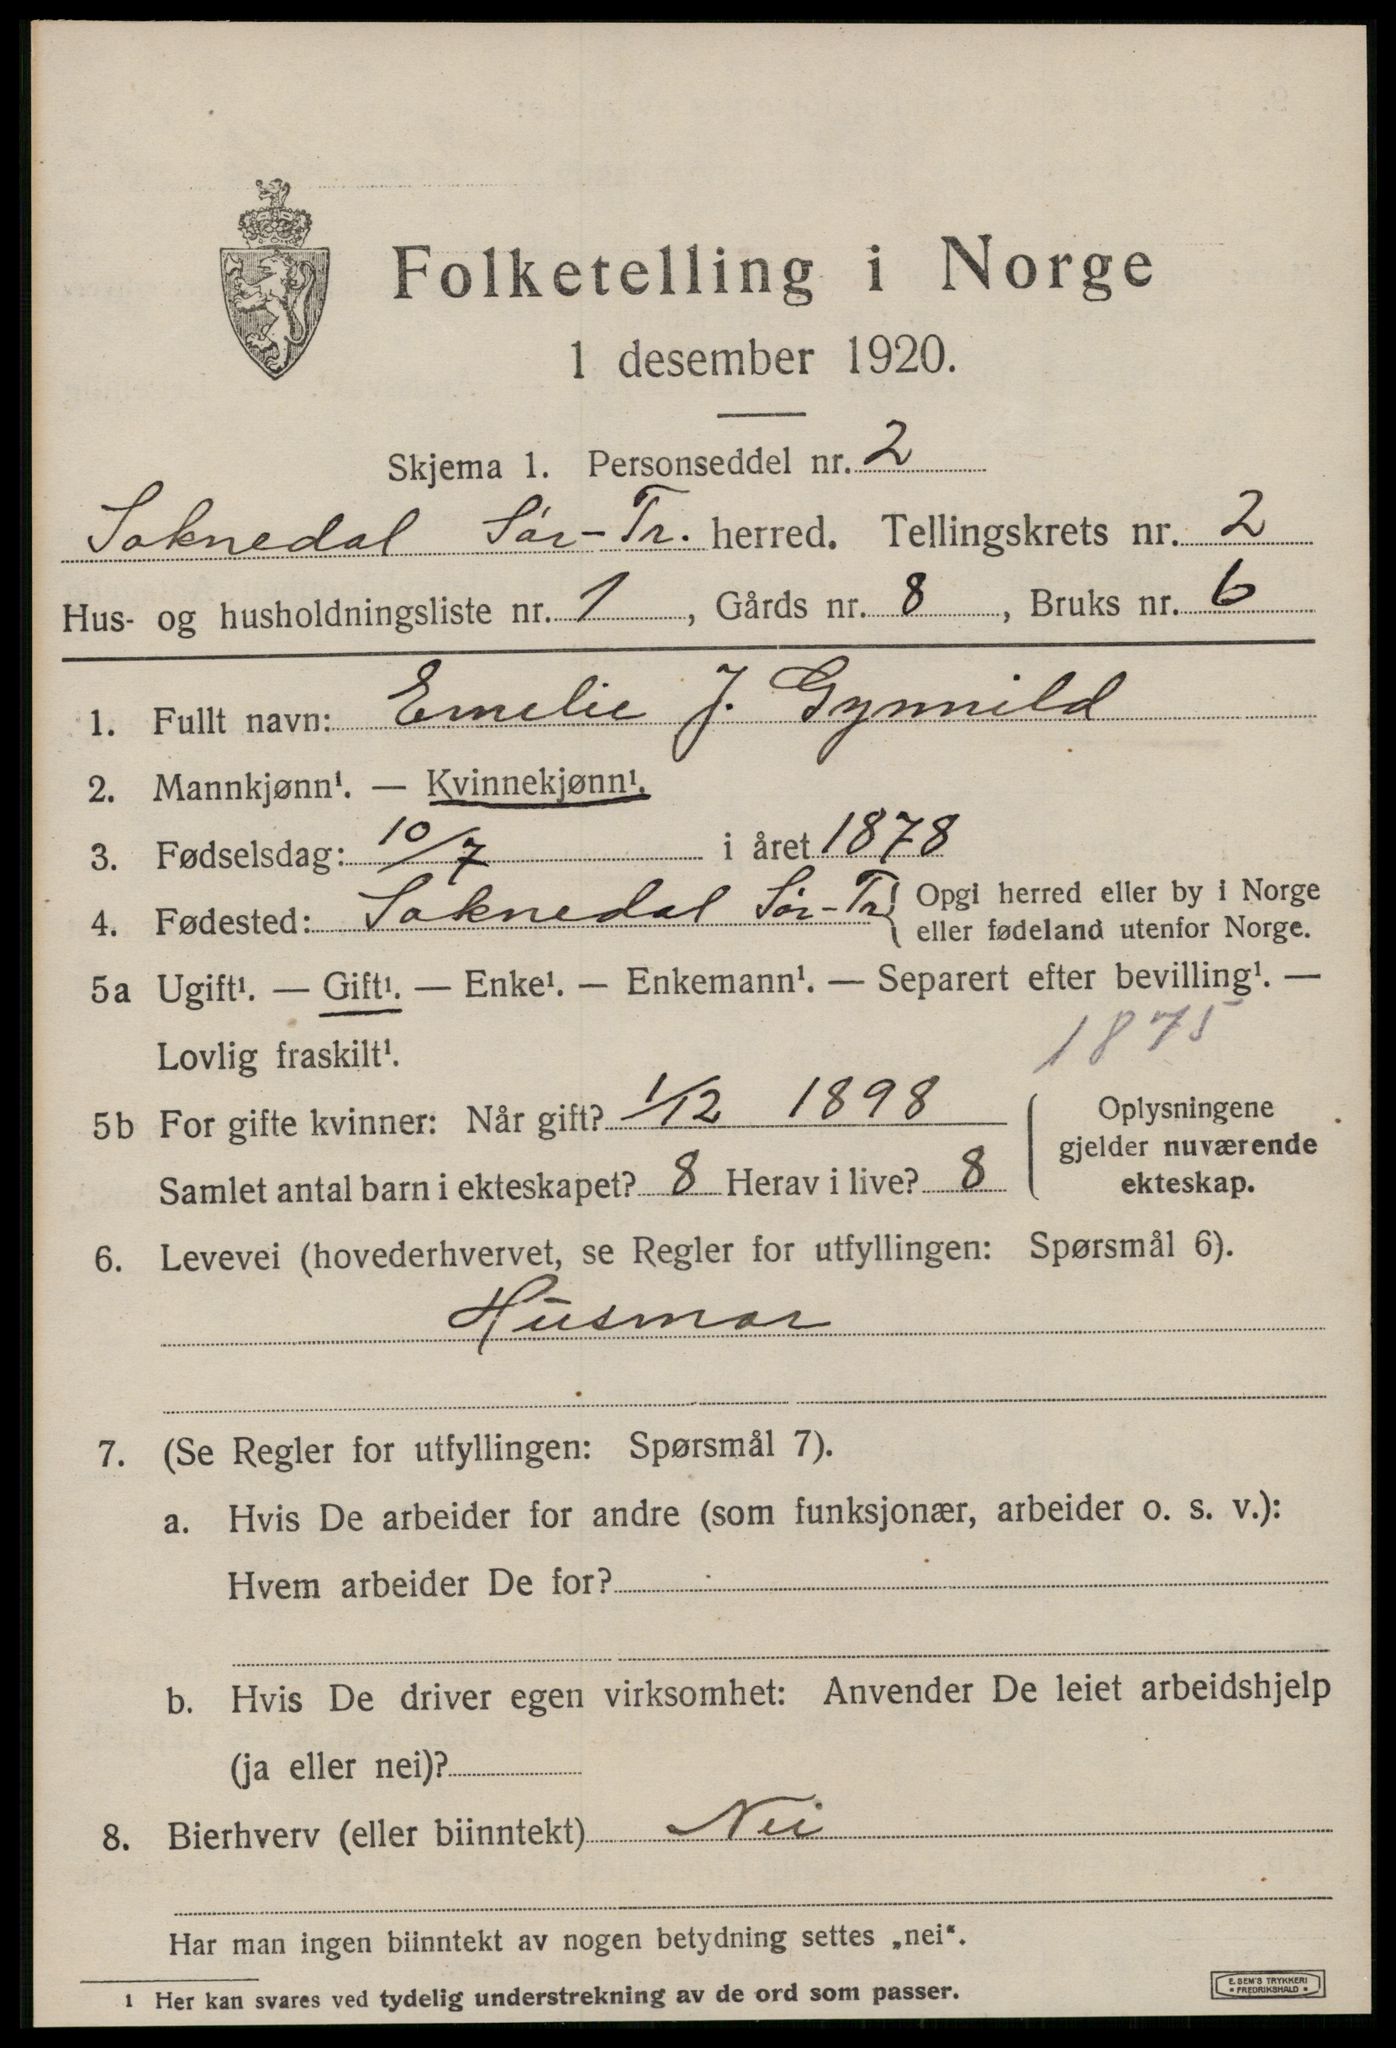 Folketelling i Norge
1 desember 1920.
Skjema 1. Personseddel nr. 2
Soknedal Sór-Tr. herred. Tellingskrets nr. 2
Hus- og husholdningsliste nr. 1, Gårds nr. 8, Bruks nr. 6
1. Fullt navn: Emelie J. Gynnild
2. Mannkjønn¹. — Kvinnekjønn¹.
3. Fødselsdag: 10/7 i året 1878
4. Fødested: Soknedal Sór-Tr { Opgi herred eller by i Norge
eller fødeland utenfor Norge.
5a Ugift¹. — Gift¹. — Enke¹. — Enkemann¹. — Separert efter bevilling¹. —
Lovlig fraskilt¹. 1875
5b For gifte kvinner: Når gift? 1/12 1898
Samlet antal barn i ekteskapet? 8 Herav i live? 8
{ Oplysningene
gjelder nuværende
ekteskap.
6. Levevei (hovederhvervet, se Regler for utfyllingen: Spørsmål 6).
Husmor
7. (Se Regler for utfyllingen: Spørsmål 7).
a. Hvis De arbeider for andre (som funksjonær, arbeider o. s. v.):
Hvem arbeider De for?
b. Hvis De driver egen virksomhet: Anvender De leiet arbeidshjelp
(ja eller nei)?
8. Bierhverv (eller biinntekt) Nei
Har man ingen biinntekt av nogen betydning settes „nei“.
1 Her kan svares ved tydelig understrekning av de ord som passer.
E. SEM'S TRYKKERI
* FREDRIKSHALD *